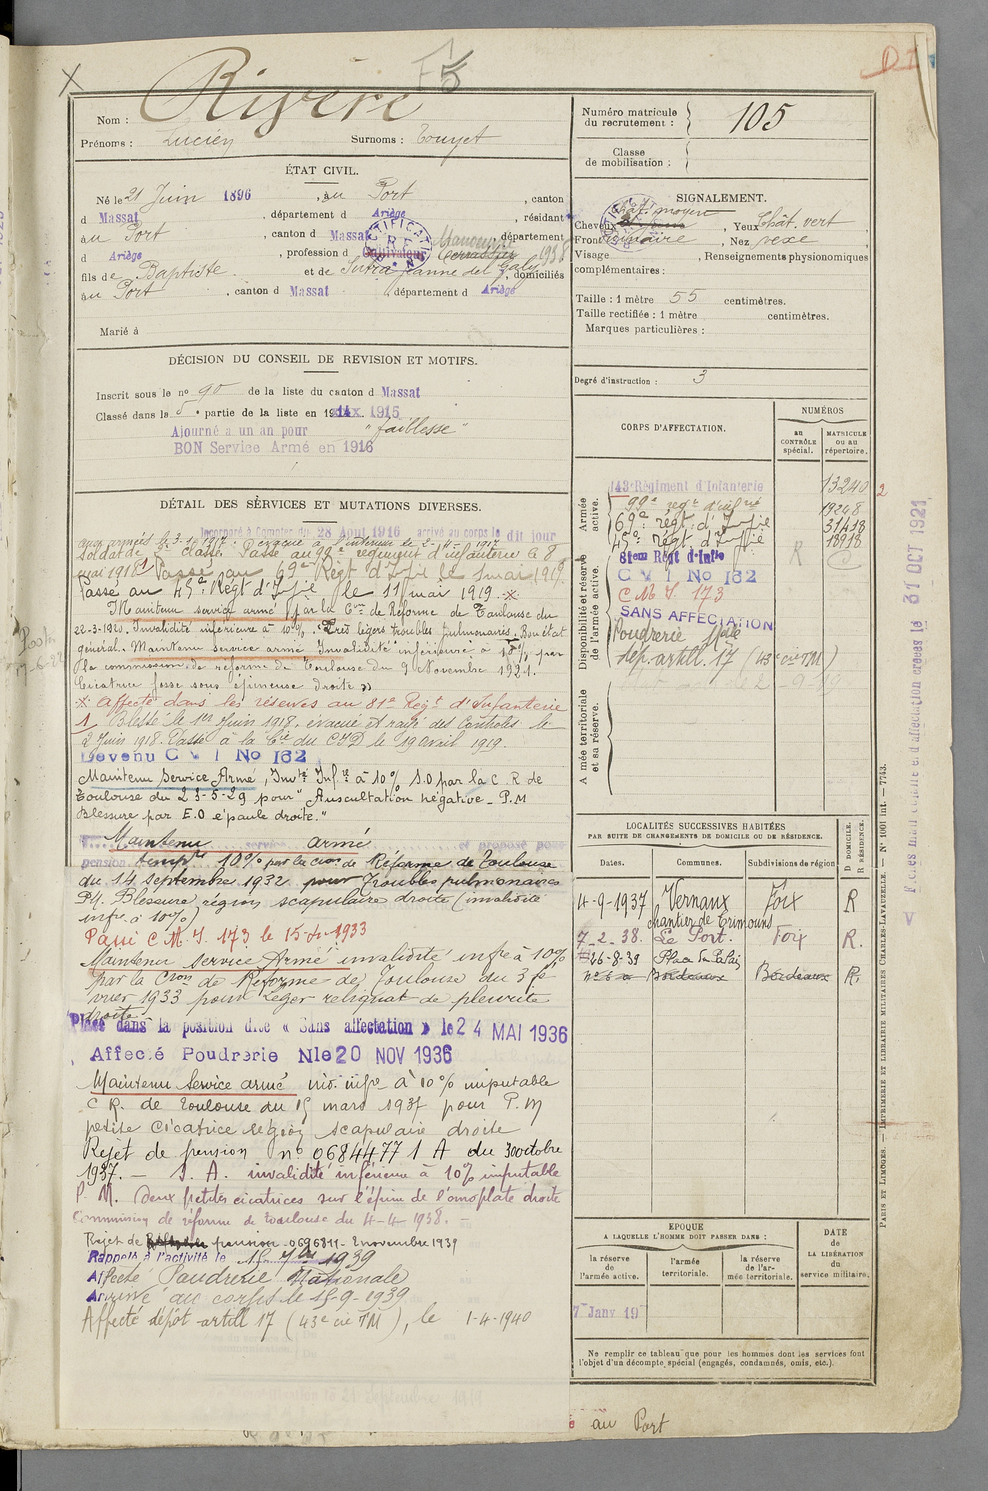 F5
D1
Nom : Rivère
Prénoms : Lucien Surnoms : Touyet
Numéro matricule du recrutement : 105
Classe de mobilisation :
ÉTAT CIVIL.
Né le 21 Juin 1896, au Port, canton
d Massat, département d Ariège, résidant
au Port, canton d Massat, département
d Ariège, profession d Cultivateur Manoeuvre 1938
fils de Baptiste et de Sutra Jeanne del Galy, domiciliés
au Port, canton d Massat, département d Ariège
Marié à
SIGNALEMENT.
chât. moyen
Cheveux , Yeux chât. vert
Front ordinaire, Nez vexe
Visage , Renseignements physionomiques
complémentaires :
Taille : 1 mètre 55 centimètres.
Taille rectifiée : 1 mètre centimètres.
Marques particulières :
Degré d'instruction : 3
DÉCISION DU CONSEIL DE REVISION ET MOTIFS.
Inscrit sous le nº 90 de la liste du canton d Massat
Classé dans la 5e partie de la liste en 1915
Ajourné a un an pour "faiblesse"
BON Service Armé en 1916
DÉTAIL DES SERVICES ET MUTATIONS DIVERSES.
Incorporé à Compter du 28 Aout 1916 arrivé au corps le dit jour
soldat de 2e classe. Passé au 99e régiment d'infanterie le 8
mai 1918. Passé au 69e Régt d'Infie le 1 mai 1919
Passé au 45e Régt d'Infie le 11 mai 1919. ※
Maintenu service armé par la Con de Réforme de Toulouse du
22-3-1920. Invalidité inférieure à 10% "Très légers troubles pulmonaires. Bon état
général. Maintenu service armé Invalidité inférieure à 10% par
la commission de réforme de Toulouse du 9 Novembre 1921.
Cicatrice fosse sous épineuse droite »
※ affecté dans les réserves au 81e Régt d'Infanterie
1 Blessé le 1er Juin 1918. évacué et rayé des Contrôles le
2 Juin 1918. Passé à la Cie du CID le 19 avril 1919.
Devenu C V I No 162
Maintenu Service Armé, Invté Infre à 10% S.O par la C. R de
Toulouse du 23-5-29 pour "Auscultation négative. P.M
Blessure par E.O épaule droite."
Maintenu service armé et proposé pour
pension tempre 10% par la Con de Réforme de Toulouse
du 14 septembre 1932 pour Troubles pulmonaires
P.M. Blessure région scapulaire droite (invalidité
infre à 10%)
Passé C M. I. 173 le 15- -1933
Maintenu service Armé invalidité infre à 10%
par la Cion de Réforme de Toulouse du 3 fé
vrier 1933 pour léger reliquat de pleurite
droite
Placé dans la position dite « Sans affectation » le 24 MAI 1936
Affecté Poudrerie Nle 20 NOV 1936
Maintenu Service armé inv. infre à 10% imputable
C R. de Toulouse du 15 mars 1937 pour P.M
petite cicatrice région scapulaire droite
Rejet de pension nº 0684477 1 A du 30 octobre
1937. — S. A. invalidité inférieure à 10% imputable
P. M. Deux petites cicatrices sur l'épine de l'omoplate droite
Commission de réforme de Toulouse du 4-4-1938.
Rejet de pension 0696811 - 2 novembre 1939
Rappelé à l'activité le 15 7bre 1939
Affecté Poudrerie Nationale
Arrivé au corps le 15-9-1939
Affecté dépôt artill 17 (43e cie TM), le 1-4-1940
CORPS D'AFFECTATION.
NUMÉROS
au CONTRÔLE spécial.
MATRICULE ou au répertoire.
Armée active.
143e Régiment d'Infanterie 13240
99e regt d'infrie 19248
69e regt d'Infie 31418
45e regt d'Infie 18918
Disponibilité et réserve de l'armée active.
81em Regt d'Infie R
C V I No 162
C M I 173
SANS AFFECTATION
Poudrerie Nale
dép. artill. 17 (43e cie TM)
Armée territoriale et sa réserve.
LOCALITÉS SUCCESSIVES HABITÉES
PAR SUITE DE CHANGEMENTS DE DOMICILE OU DE RÉSIDENCE.
Dates. Communes. Subdivisions de région D DOMICILE. R RÉSIDENCE.
4-9-1937 Vernaux Foix R
chantier de Trimouns
7-2-38. Le Port. Foix R.
26-8-39 Place du Palais
nº 6 a Bordeaux Bordeaux R.
ÉPOQUE
A LAQUELLE L'HOMME DOIT PASSER DANS :
la réserve de l'armée active.
l'armée territoriale.
la réserve de l'armée territoriale.
DATE de LA LIBÉRATION du service militaire.
7 Janv 19
Ne remplir ce tableau que pour les hommes dont les services font
l'objet d'un décompte spécial (engagés, condamnés, omis, etc.).
au Port
PARIS ET LIMOGES. — IMPRIMERIE ET LIBRAIRIE MILITAIRES CHARLES-LAVAUZELLE. — Nº 1001 int. — 7743.
31 OCT 1921